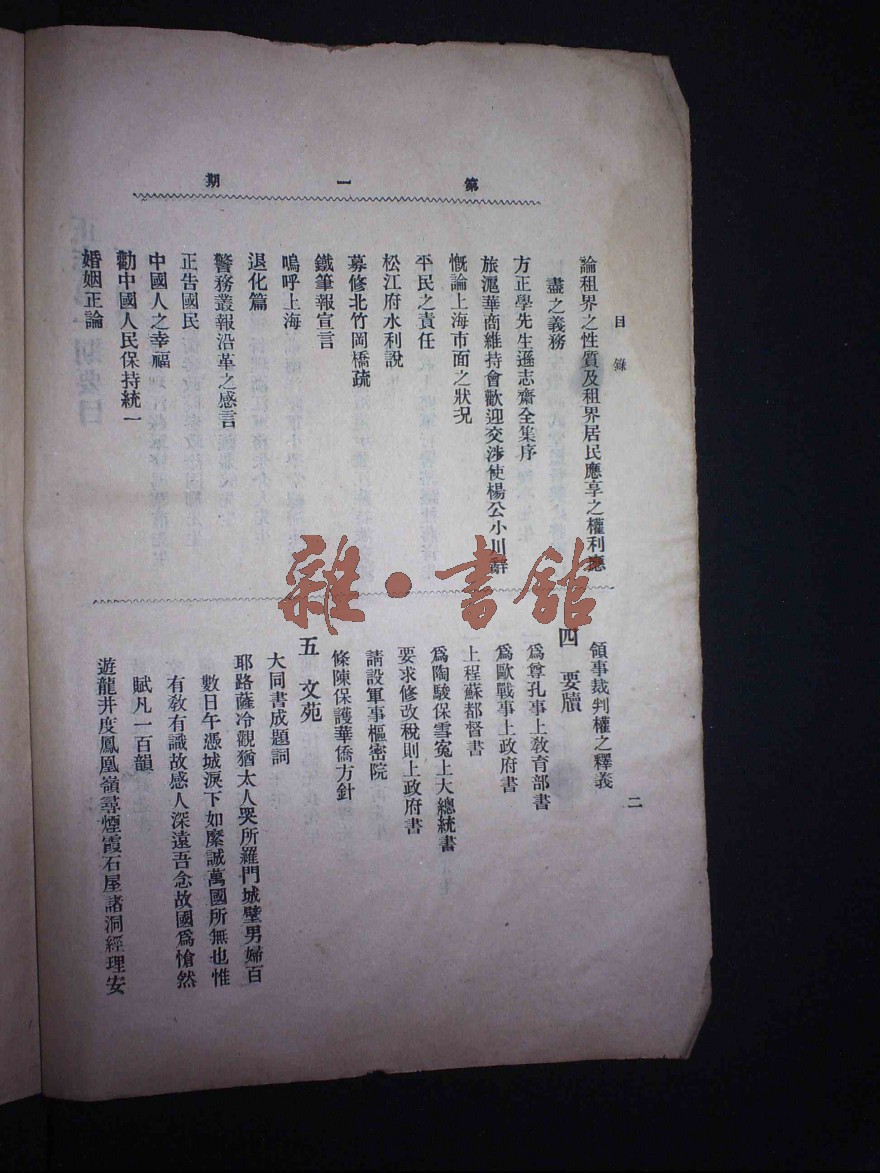 第一期
目錄
論租界之性質及租界居民應享之權利應
盡之義務
方正學先生遜志齋全集序
旅滬華商維持會歡迎交涉使楊公小川辭
慨論上海市面之狀況
平民之責任
松江府水利說
募修北竹岡橋疏
鐵筆報宣言
嗚呼上海
退化篇
警務叢報沿革之感言
正告國民
中國人之幸福
勸中國人民保持統一
婚姻正論
領事裁判權之釋義
四 要牘
爲尊孔事上教育部書
爲歐戰事上政府書
上程蘇都督書
爲陶駿保雪寃上大總統書
要求修改稅則上政府書
請設軍事樞密院
條陳保護華僑方針
五 文苑
大同書成題詞
耶路薩冷觀猶太人哭所羅門城壁男婦百
數日午憑城淚下如縻誠萬國所無也惟
有敎有識故感人深遠吾念故國爲愴然
賦凡一百韻
遊龍井度鳳凰嶺尋煙霞石屋諸洞經理安
二
雜·書館